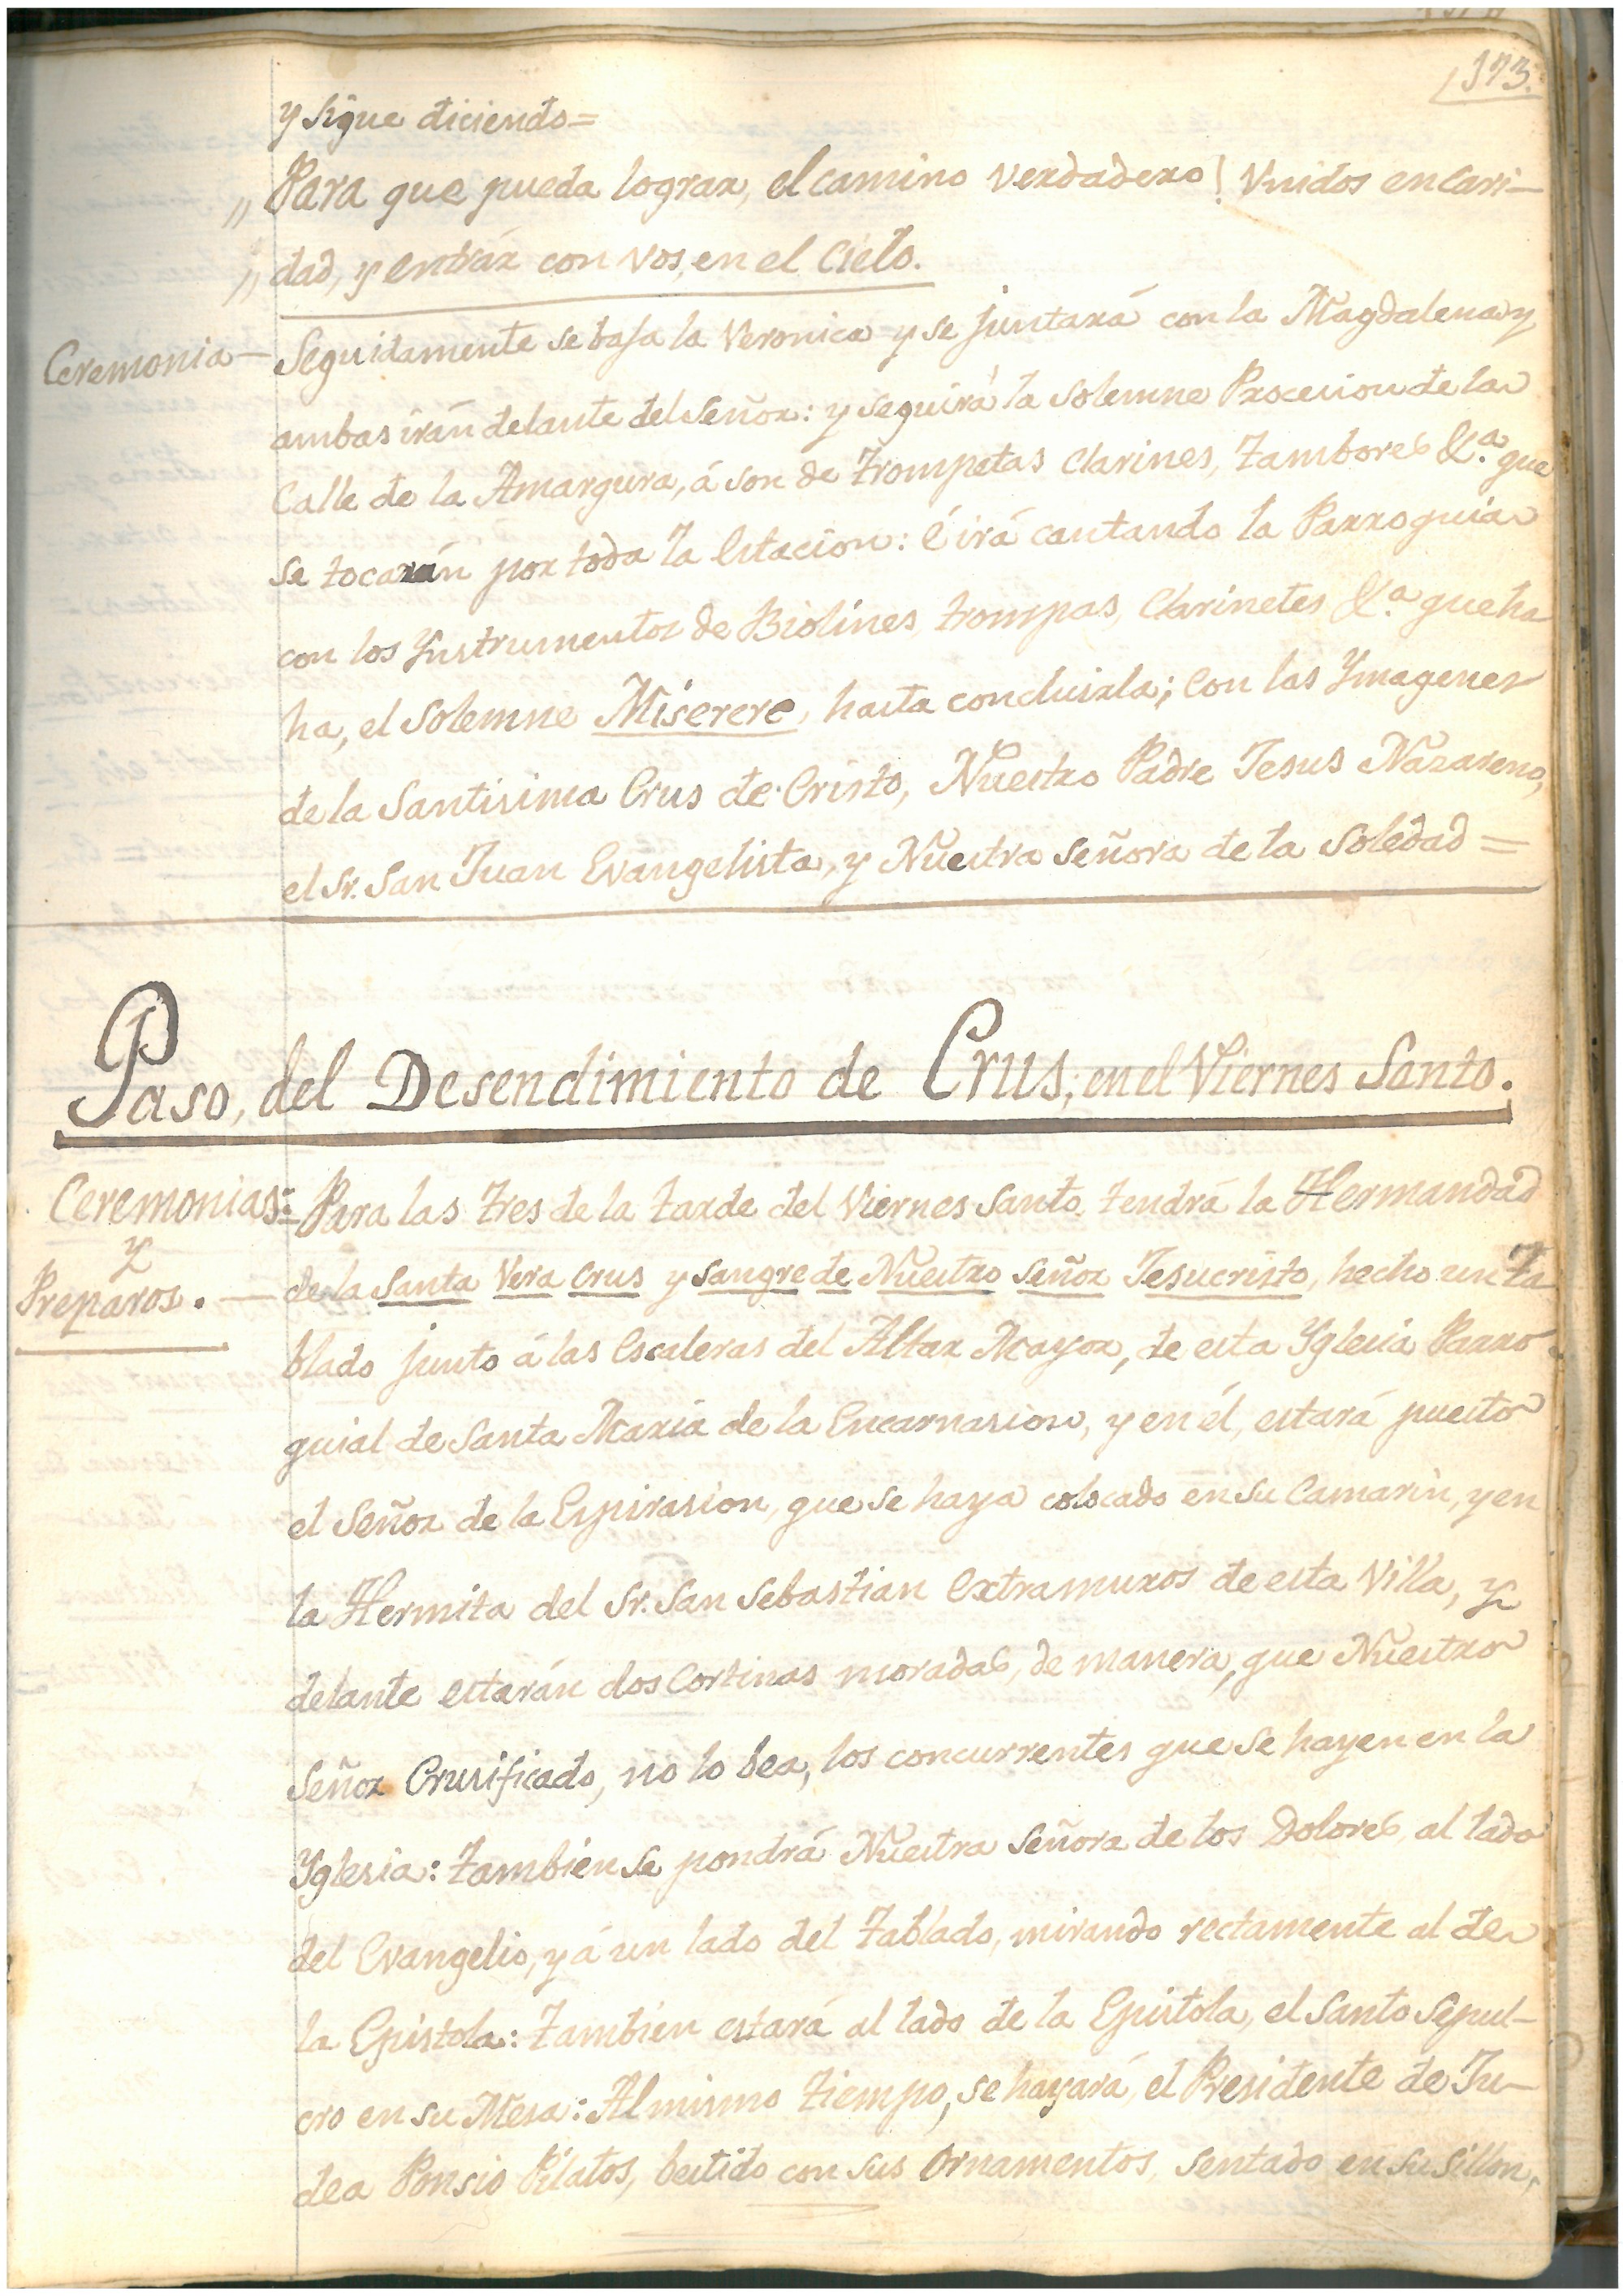 173.
y sigue diciendo=
„ Para que pueda lograr, el camino verdadero! Vnidos en cari-
„ dad, y entrár con vos, en el Cielo.
Ceremonia— Seguidamente se baja la Veronica y se juntará con la Magdalena y
ambas irán delante del Señor: y seguirá la solemne Procesion de la
Calle de la Amargura, á son de trompetas Clarines, tambores &.ª que
se tocarán por toda la Estacion: é irá cantando la Parroquia
con los Ynstrumentos de Biolines, trompas, Clarinetes &.ª que ha
ha, el solemne Miserere, hasta concluirla; con las Ymagenes
de la Santisima Crus de Cristo, Nuestro Padre Jesus Nazareno,
el Sr. San Juan Evangelista, y Nuestra Señora de la Soledad=
Paso, del Desendimiento de Crus, en el Viernes Santo.
Ceremonias= Para las tres de la tarde del Viernes Santo tendrá la Hermandad
y
Preparos.— de la Santa Vera Crus y Sangre de Nuestro Señor Jesucristo, hecho un ta
blado junto á las Escaleras del Altar Mayor, de esta Yglesia Parro-
quial de Santa Maria de la Encarnasion, y en él, estará puesto
el Señor de la Espirasion, que se haya colocado en su Camarin, y en
la Hermita del Sr. San Sebastian extramuros de esta Villa, y
delante estarán dos Cortinas moradas, de manera, que Nuestro
Señor Crusificado, no lo bea, los concurrentes que se hayen en la
Yglesia: tambien se pondrá Nuestra Señora de los Dolores, al lado
del Evangelio, y á un lado del tablado, mirando rectamente al de
la Epistola: tambien estará al lado de la Epistola, el Santo Sepul-
cro en su Mesa: Al mismo tiempo, se hayará, el Presidente de Ju-
dea Ponsio Pilatos, bestido con sus Ornamentos, sentado en su sillon,